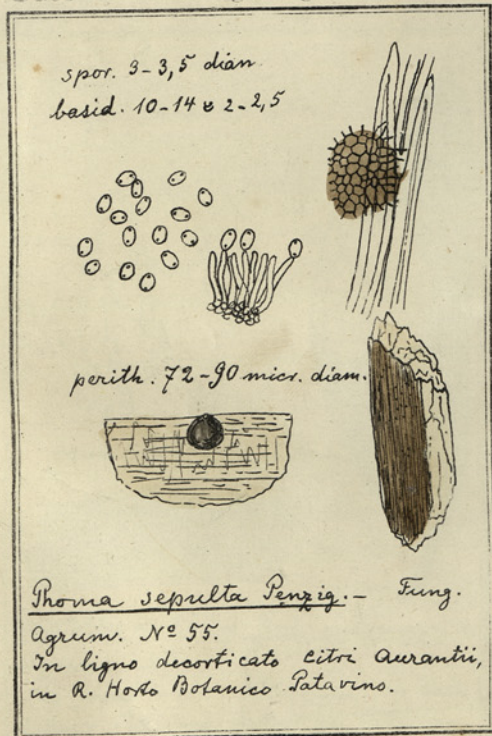 spor. 3-3,5 diam
basid. 10-14 x 2-2,5
perith. 72-90 micr. diam.
Phoma sepulta Penzig. — Fung.
Agrum. Nº 55.
In ligno decorticato Citri Aurantii,
in R. Horto Botanico Patavino.